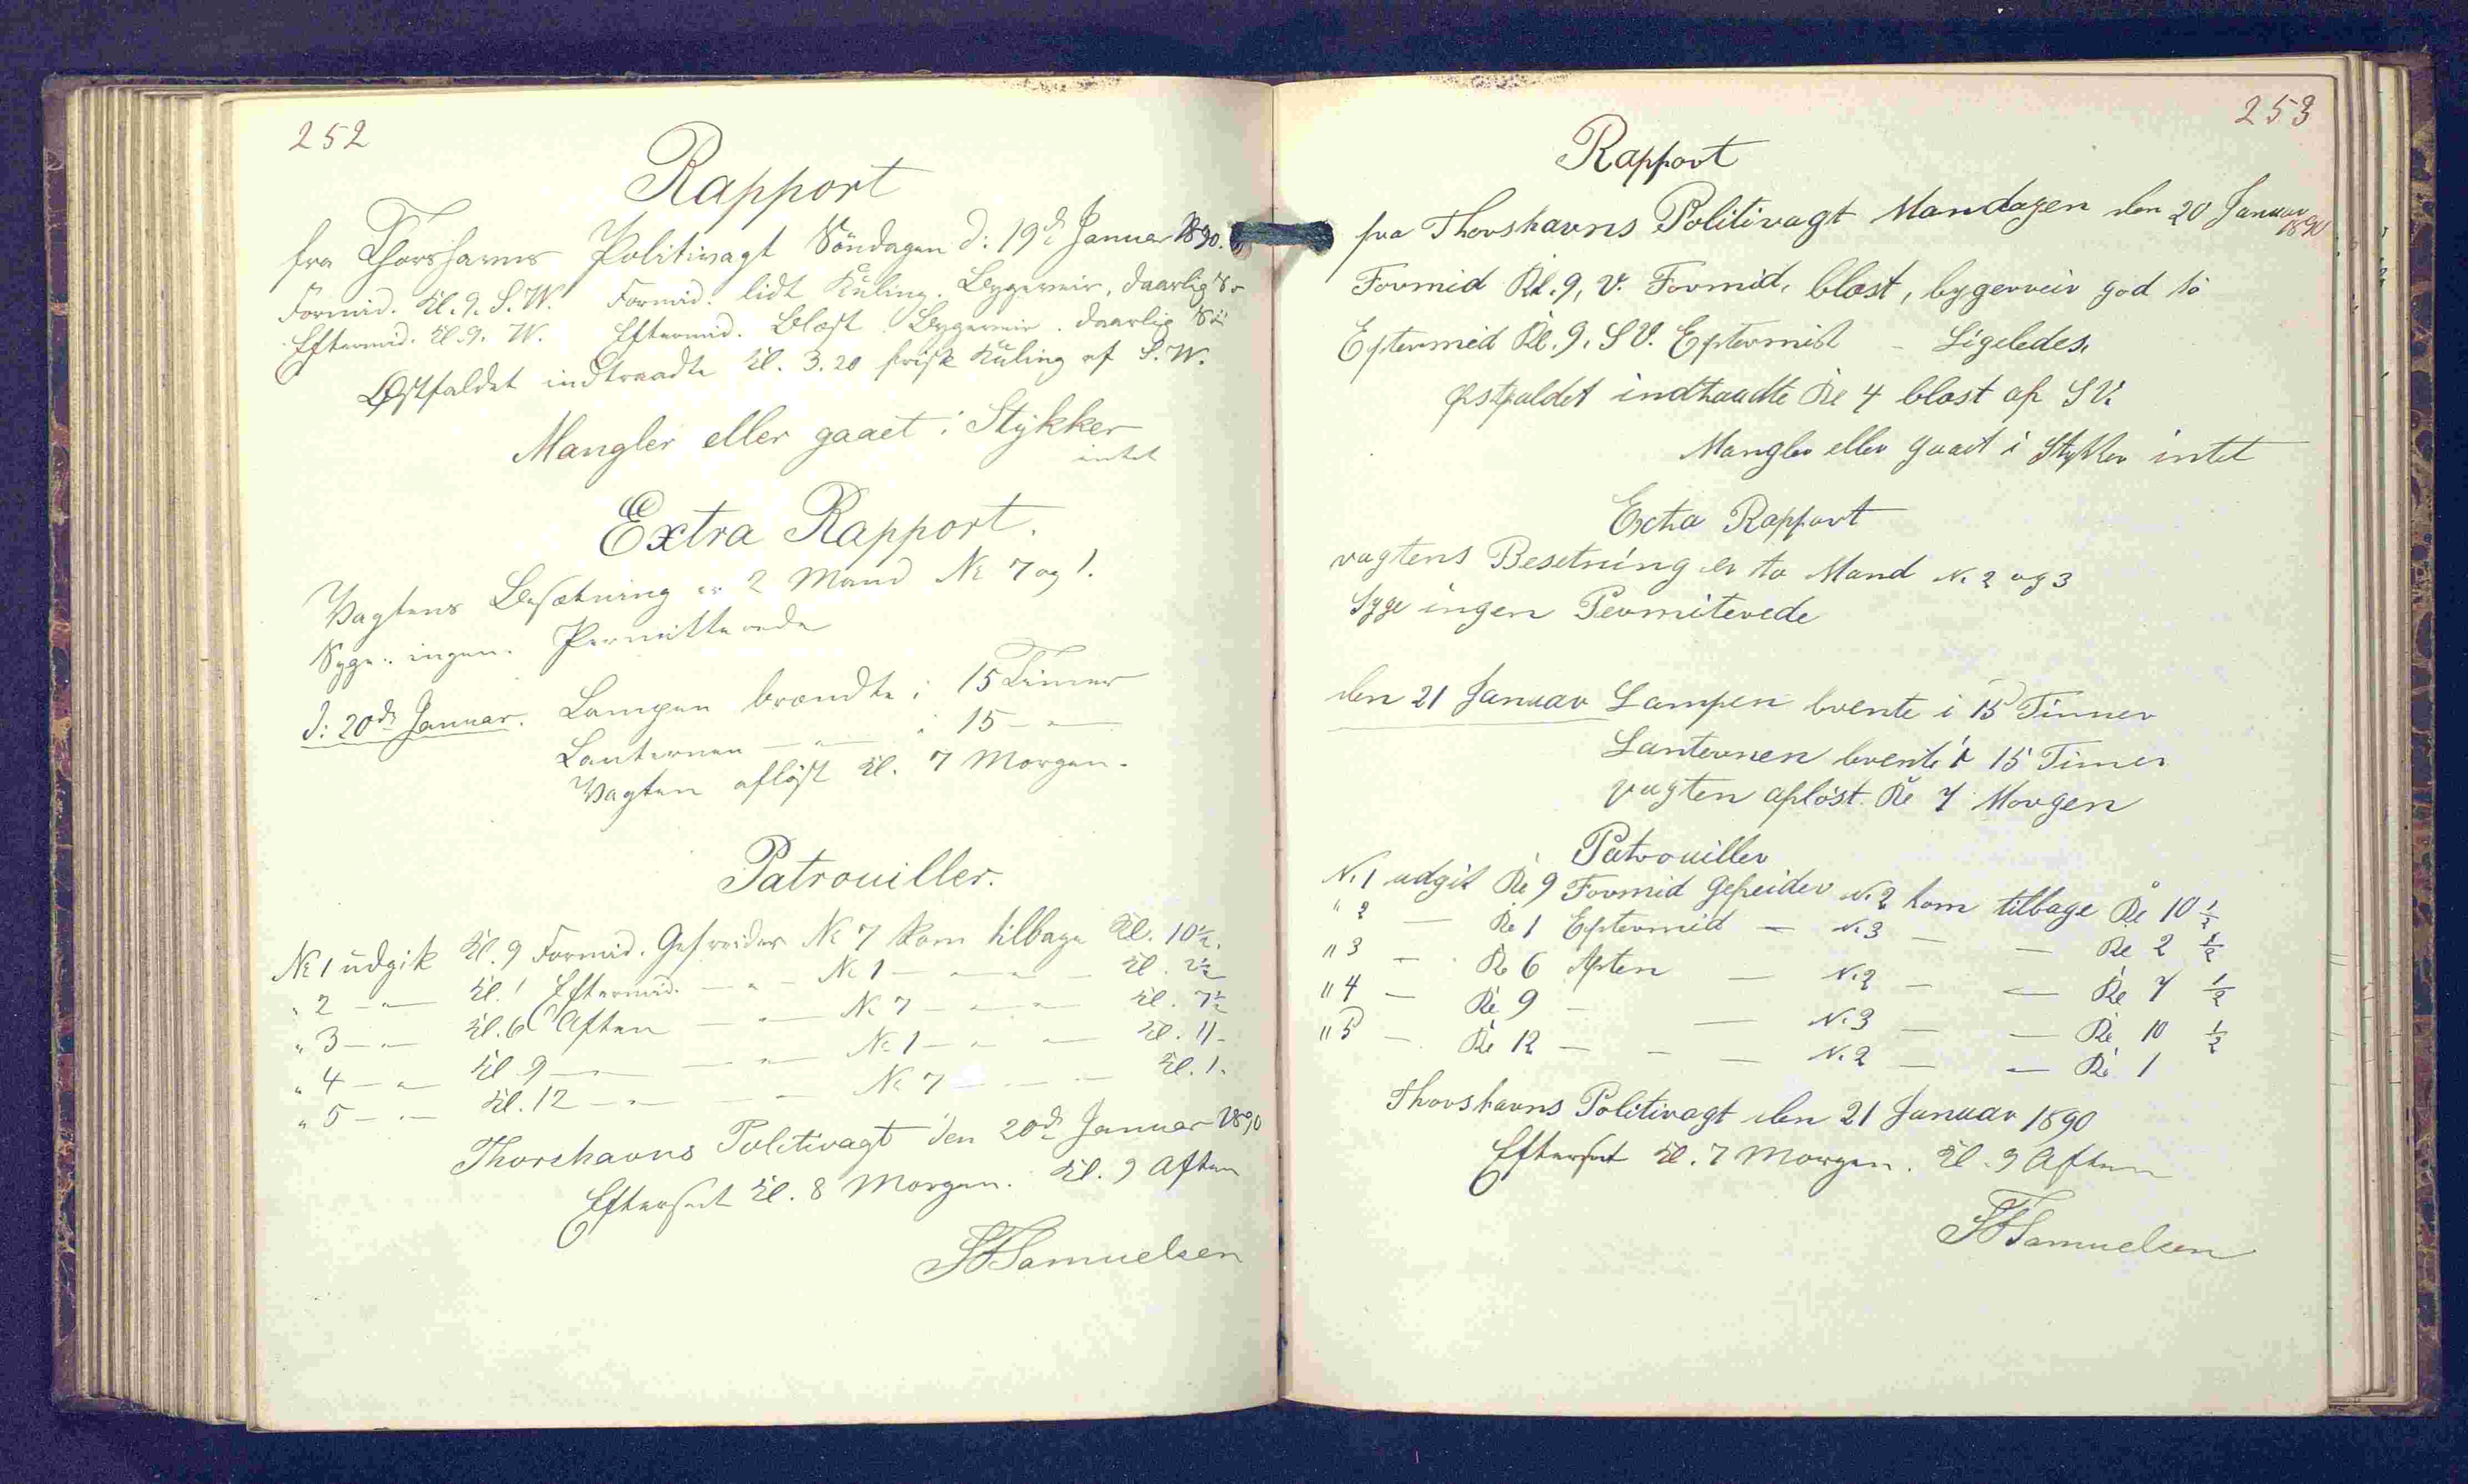 252
Rapport
fra Thorshavns Politivagt Söndagen d: 19de Januar 1890.
Formid. Kl. 9. S. W. Formid. lidt Kuling. Bygeveir, daarlig Sö
Eftermid. Kl. 9. W. Eftermid. Blæst. Bygeveir. daarlig Sö
Østfaldet indtraadte Kl. 3.20 frisk Kuling af S. W.
Mangler eller gaaet i Stykker
intet
Extra Rapport.
Vagtens Besætning er 2 Mand No 7 og 1.
Syge: ingen. Permitterede
d: 20de Januar. Lampen brændte i 15 Timer
Lanternen — " — i 15 — " —
Vagten afløst Kl. 7 Morgen.
Patrouiller.
No 1 udgik Kl. 9 Formid. Gefreider No 7 kom tilbage Kl. 10½.
" 2 — " — Kl. 1 Eftermid. — " — No 1 — " — " — Kl. 2½
" 3 — " — Kl. 6 Aften — " — No 7 — " — " — Kl. 7½
" 4 — " — Kl 9 — " — — " — No 1 — " — " — Kl. 11 —
" 5 — " — Kl. 12 — " — — " — No 7 — " — " — Kl. 1.
Thorshavns Politivagt den 20de Januar 1890
Efterseet Kl. 8 Morgen. Kl. 9 Aften
Samuelsen
253
Rapport
fra Thorshavns Politivagt Mandagen den 20 Januar 1890
Formid Kl. 9, V. Formid, blæst, bygerveir god sö
Eftermed Kl. 9. SV. Eftermid — Ligeledes,
østfaldet indtraadte Kl 4 blæst af SV.
Mangler eller gaait i Stykker intet
Extra Rapport
vagtens Besetning er to Mand N. 2 og 3
Syge ingen Permiterede
den 21 Januar Lampen brente i 15 Timer
Lanternen brente i 15 Timer
vagten afløst Kl 7 Morgen
Patrouiller
N. 1 udgik Kl 9 Formid gefreider N. 2 kom tilbage Kl 10 ½
" 2 — Kl 1 Eftermid — N. 3 — — Kl 2 ½
" 3 — Kl 6 Aften — N. 2 — — Kl 7 ½
" 4 — Kl 9 — — N. 3 — — Kl 10 ½
" 5 — Kl 12 — — — N. 2 — — Kl 1
Thorshavns Politivagt den 21 Januar 1890
Efterseet Kl. 7 Morgen. Kl. 9 Aften
Samuelsen